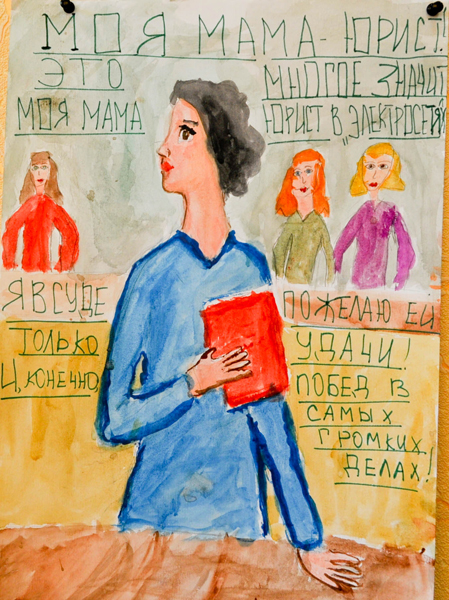 МОЯ МАМА - ЮРИСТ!
ЭТО
МОЯ МАМА
МНОГОЕ ЗНАЧИТ
ЮРИСТ В „ЭЛЕКТРОСЕТЯХ"
Я В СУДЕ
ТОЛЬКО
И, КОНЕЧНО,
ПОЖЕЛАЮ ЕЙ
УДАЧИ!
ПОБЕД В
САМЫХ
ГРОМКИХ
ДЕЛАХ!